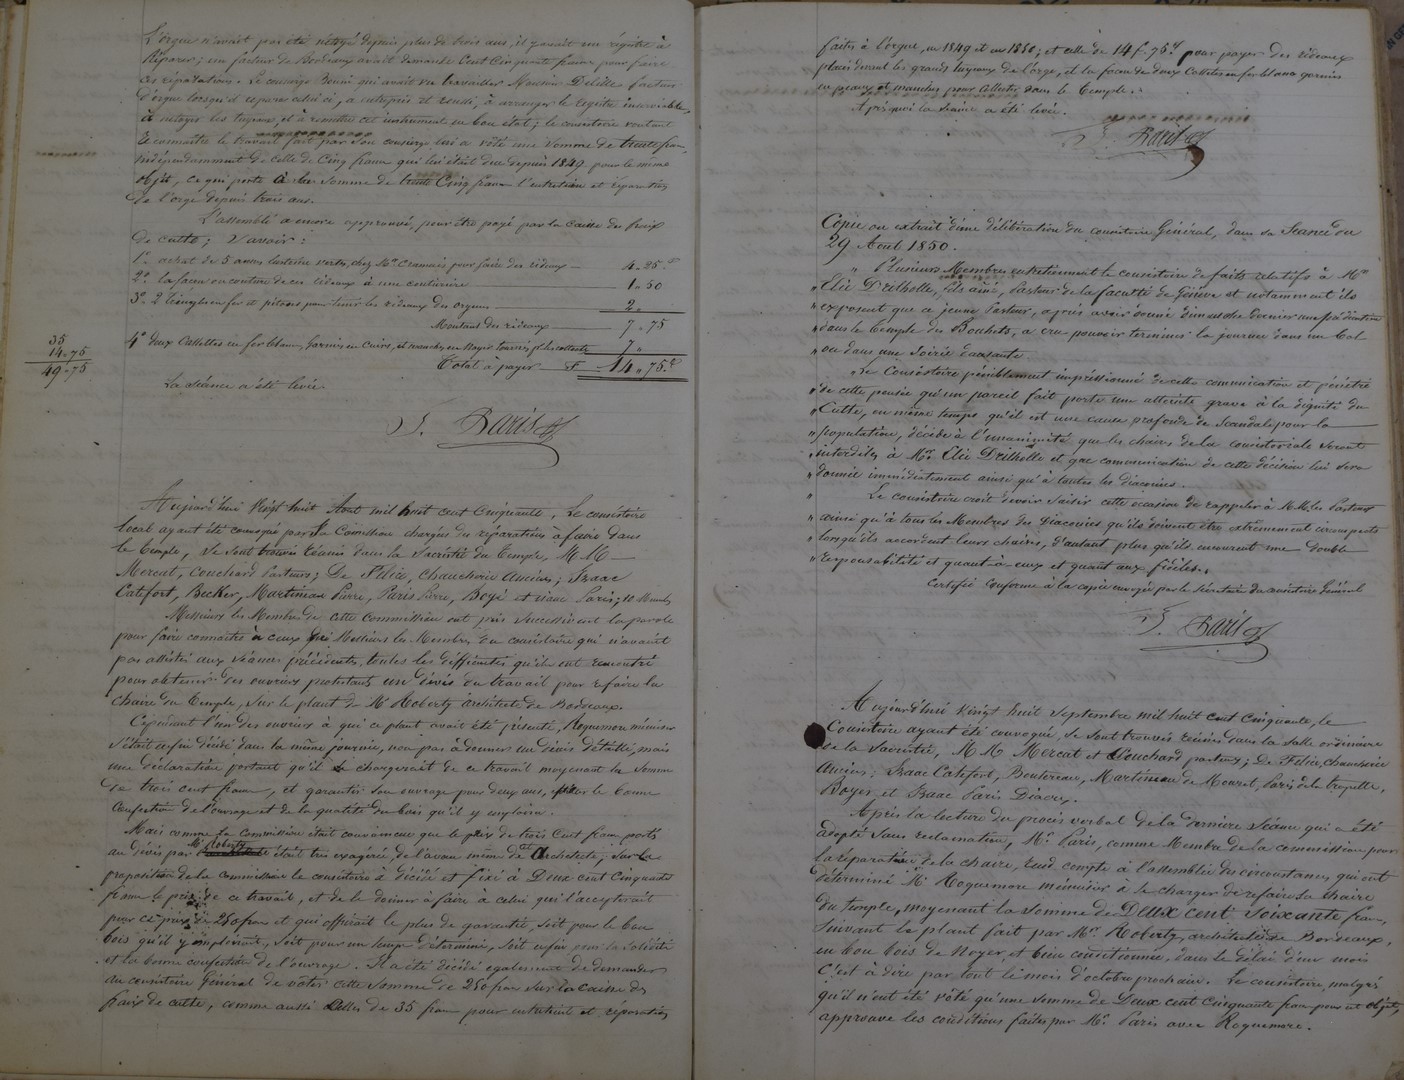 L'orgue n'avait pas été nétoyé depuis plus de trois ans, il y avait un régistre à
Réparer; un facteur de Bordeaux avait demandé Cent Cinquante francs pour faire
ces réparations. Le concierge qui avait vu travailler Monsieur Delille facteur
d'orgue lorsqu'il répara celui ci, a entrepris et réussi, à arranger le régistre
à nétoyer les tuyaux, et à remettre cet instrument en bon état; le consistoire voulant
Reconnaître le travail fait par son concierge lui a voté une somme de trente francs
indépendamment de celle de Cinq francs qui lui était due depuis 1849 pour le même
objet, ce qui porte à la somme de trente Cinq francs l'entretien et réparation
de l'orge depuis trois ans.
L'assemblé a encore approuvé, pour être payé par la Caisse des frais
de culte; Savoir:
1° achat de 5 aunes lustrine verte, chez Mr pour faire des rideaux 4 " 25 c
2° la façon ou couture de ces rideaux à une couturière 1 " 50
3° 2 tringles en fer et pitons pour tenir les rideaux des orgues 2 "
Montant des rideaux 7 " 75
4° deux Cassettes en fer blanc, garnies en Cuirs, et manches en Noyer 7 "
Total à payer F 14 " 75 c
35
14 " 75
49 " 75
La séance a été levée.
I. Paris
Aujourd'hui Vingt huit Aout mil huit cent Cinquante, Le consistoire
local ayant été convoqué par la Comission chargée des réparations à faire dans
le temple, se sont trouvés réunis dans la Sacristie du Temple, M M
Mercat, Couchard Pasteurs; De Félice, Chaucherie Anciens; Isaac
Catefort, Becker, Martineau Pierre, Paris Pierre, Boyé et isaac Paris; 10 Membres
Messieurs les Membres de cette commission ont pris successivement la parole
pour faire connaître à ceux de Messieurs les Membres du consistoire qui n'avaient
pas assisté aux séances précédentes, toutes les difficultés qu'ils ont rencontré
pour obtenir des ouvriers protestants un dévis du travail pour refaire la
chaire du Temple, sur le plant de Mr Roberty architecte de Bordeaux.
Cependant l'un des ouvriers à qui ce plant avait été présenté, Roquemore ménisier
s'était enfin décidé dans la même journée, non pas à donner un dévis détaillé, mais
une déclaration portant qu'il se chargerait de ce travail moyenant la somme
de trois cent francs, et garantir son ouvrage pour deux ans, pour la bonne
Confection de l'ouvrage et de la qualité du bois qu'il y emploira.
Mais comme la Commission était convaincue que le prix de trois Cent francs porté
au dévis par Mr Roberty était très exagéré, de l'aveu même de cet Architecte; sur la
proposition de la Commission le consistoire a décidé et fixé à Deux cent Cinquante
francs le prix de ce travail, et de le donner à faire à celui qui l'accepterait
pour ce prix de 250 francs et qui offrirait le plus de garantie, soit pour le bon
bois qu'il y emploirait, soit pour un temps déterminé, soit enfin pour la solidité
et la bonne confection de l'ouvrage. Il a été décidé egalement de demander
au consistoire Général de voter cette somme de 250 francs sur la Caisse des
fraix de culte, comme aussi celles de 35 francs pour entretient et réparations
faites à l'orgue, en 1849 et en 1850; et celle de 14 f. 75 c pour payer des rideaux
placés devant les grands tuyaux de l'orge, et la façon de deux Cassettes en fer blanc garnies
en peaux et manches pour Collectes, dans le Temple.
Après quoi la séance a été levée.
I. Paris
Copie ou extrait d'une délibération du consistoire Général, dans sa Séance du
29 Aout 1850.
" Plusieurs Membres entretiennent le consistoire de faits relatifs à Mr
" Elie Drilholle, fils aîné, Pasteur de la faculté de Génève et notamment ils
" exposent que ce jeune Pasteur, après avoir donné dimanche dernier une prédication
" dans le Temple des Bouhets, a cru pouvoir terminer la journée dans un bal
" ou dans une soirée dansante.
" Le Consistoire péniblement impressionné de cette communication et pénétré
" de cette pensée qu'un pareil fait porte une atteinte grave à la dignité du
" Culte, en même temps qu'il est une cause profonde de Scandale pour la
" population, décide à l'unanimité que les chaires de la consistoriale seront
" interdites à Mr Elie Drilholle et que communication de cette décision lui sera
" donnée immédiatement ainsi qu'à toutes les diaconies.
" Le consistoire croit devoir saisir cette occasion de rappeler à M M. les Pasteurs
" ainsi qu'à tous les Membres des Diaconies qu'ils doivent être extrêmement circonspects
" lorsqu'ils accordent leurs chaires, d'autant plus qu'ils encourent une double
" responsabilité et quant à eux et quant aux fidèles.
Certifié Conforme à la copie envoyée par le sécrétaire du consistoire Général
I. Paris
Aujourd'hui Vingt huit Septembre mil huit cent Cinquante, le
Consistoire ayant été convoqué, se sont trouvés réunis dans la salle ordinaire
de la Sacristie, M M Mercat et Couchard pasteurs; De Félice, Chaucherie
Anciens; Isaac Catefort, Boutereau, Martineau de Mouret, Paris de la trapelle,
Boyer et Isaac Paris Diacres.
Après la lecture du procès verbal de la dernière séance qui a été
adopté sans reclamation, Mr Paris, comme Membre de la commission pour
la réparation de la chaire, rend compte à l'assemblée des circonstances qui ont
déterminé Mr Roquemore ménisier à se charger de refaire la chaire
du temple, moyenant la somme de Deux cent soixante francs,
suivant le plant fait par Mr Roberty, architecte de Bordeaux,
en bon bois de Noyer, et bien conditionnée, dans le délai d'un mois
C'est à dire par tout le mois d'octobre prochain. Le consistoire, malgré
qu'il n'eut été voté qu'une somme de Deux cent Cinquante francs pour cet objet,
approuve les conditions faites par Mr Paris avec Roquemore.